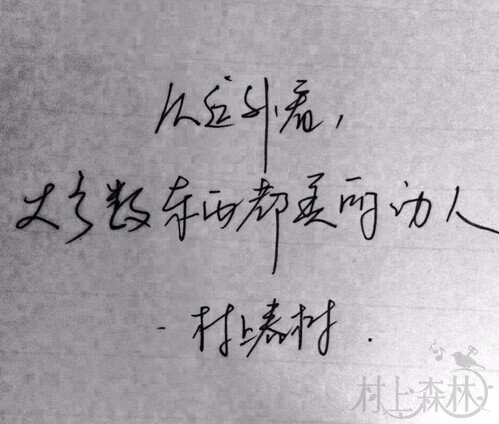 从远外看，
大多数东西都美丽动人
-村上春树.
村上森林